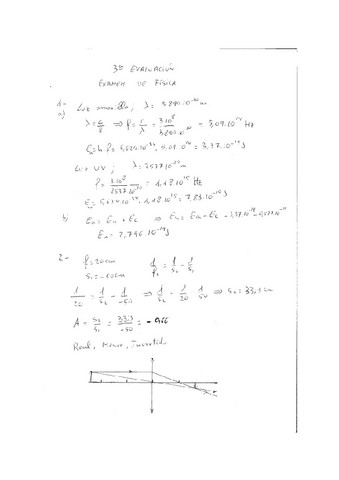 3ª EVALUACIÓN
EXAMEN DE FÍSICA
1-
a) Luz amarilla; λ = 5890·10⁻¹⁰ m
λ = c/f ⇒ f = c/λ = 3·10⁸/5890·10⁻¹⁰ = 5,09·10¹⁴ Hz
E = h·f = 6,624·10⁻³⁴ · 5,09·10¹⁴ = 3,37·10⁻¹⁹ J
Luz UV; λ = 2537·10⁻¹⁰ m
f = 3·10⁸/2537·10⁻¹⁰ = 1,18·10¹⁵ Hz
E = 6,624·10⁻³⁴ · 1,18·10¹⁵ = 7,83·10⁻¹⁹ J
b) Ea = Eu + Ec ⇒ Eu = Ea - Ec =
Eu = 2,796·10⁻¹⁹ J
2- f = 20 cm 1/f₂ = 1/s₂ - 1/s₁
s₁ = -50 cm
1/20 = 1/s₂ - 1/-50 ⇒ 1/s₂ = 1/20 - 1/50 ⇒ s₂ = 33,3 cm
A = s₂/s₁ = 33,3/-50 = -0,66
Real, Menor, Invertida